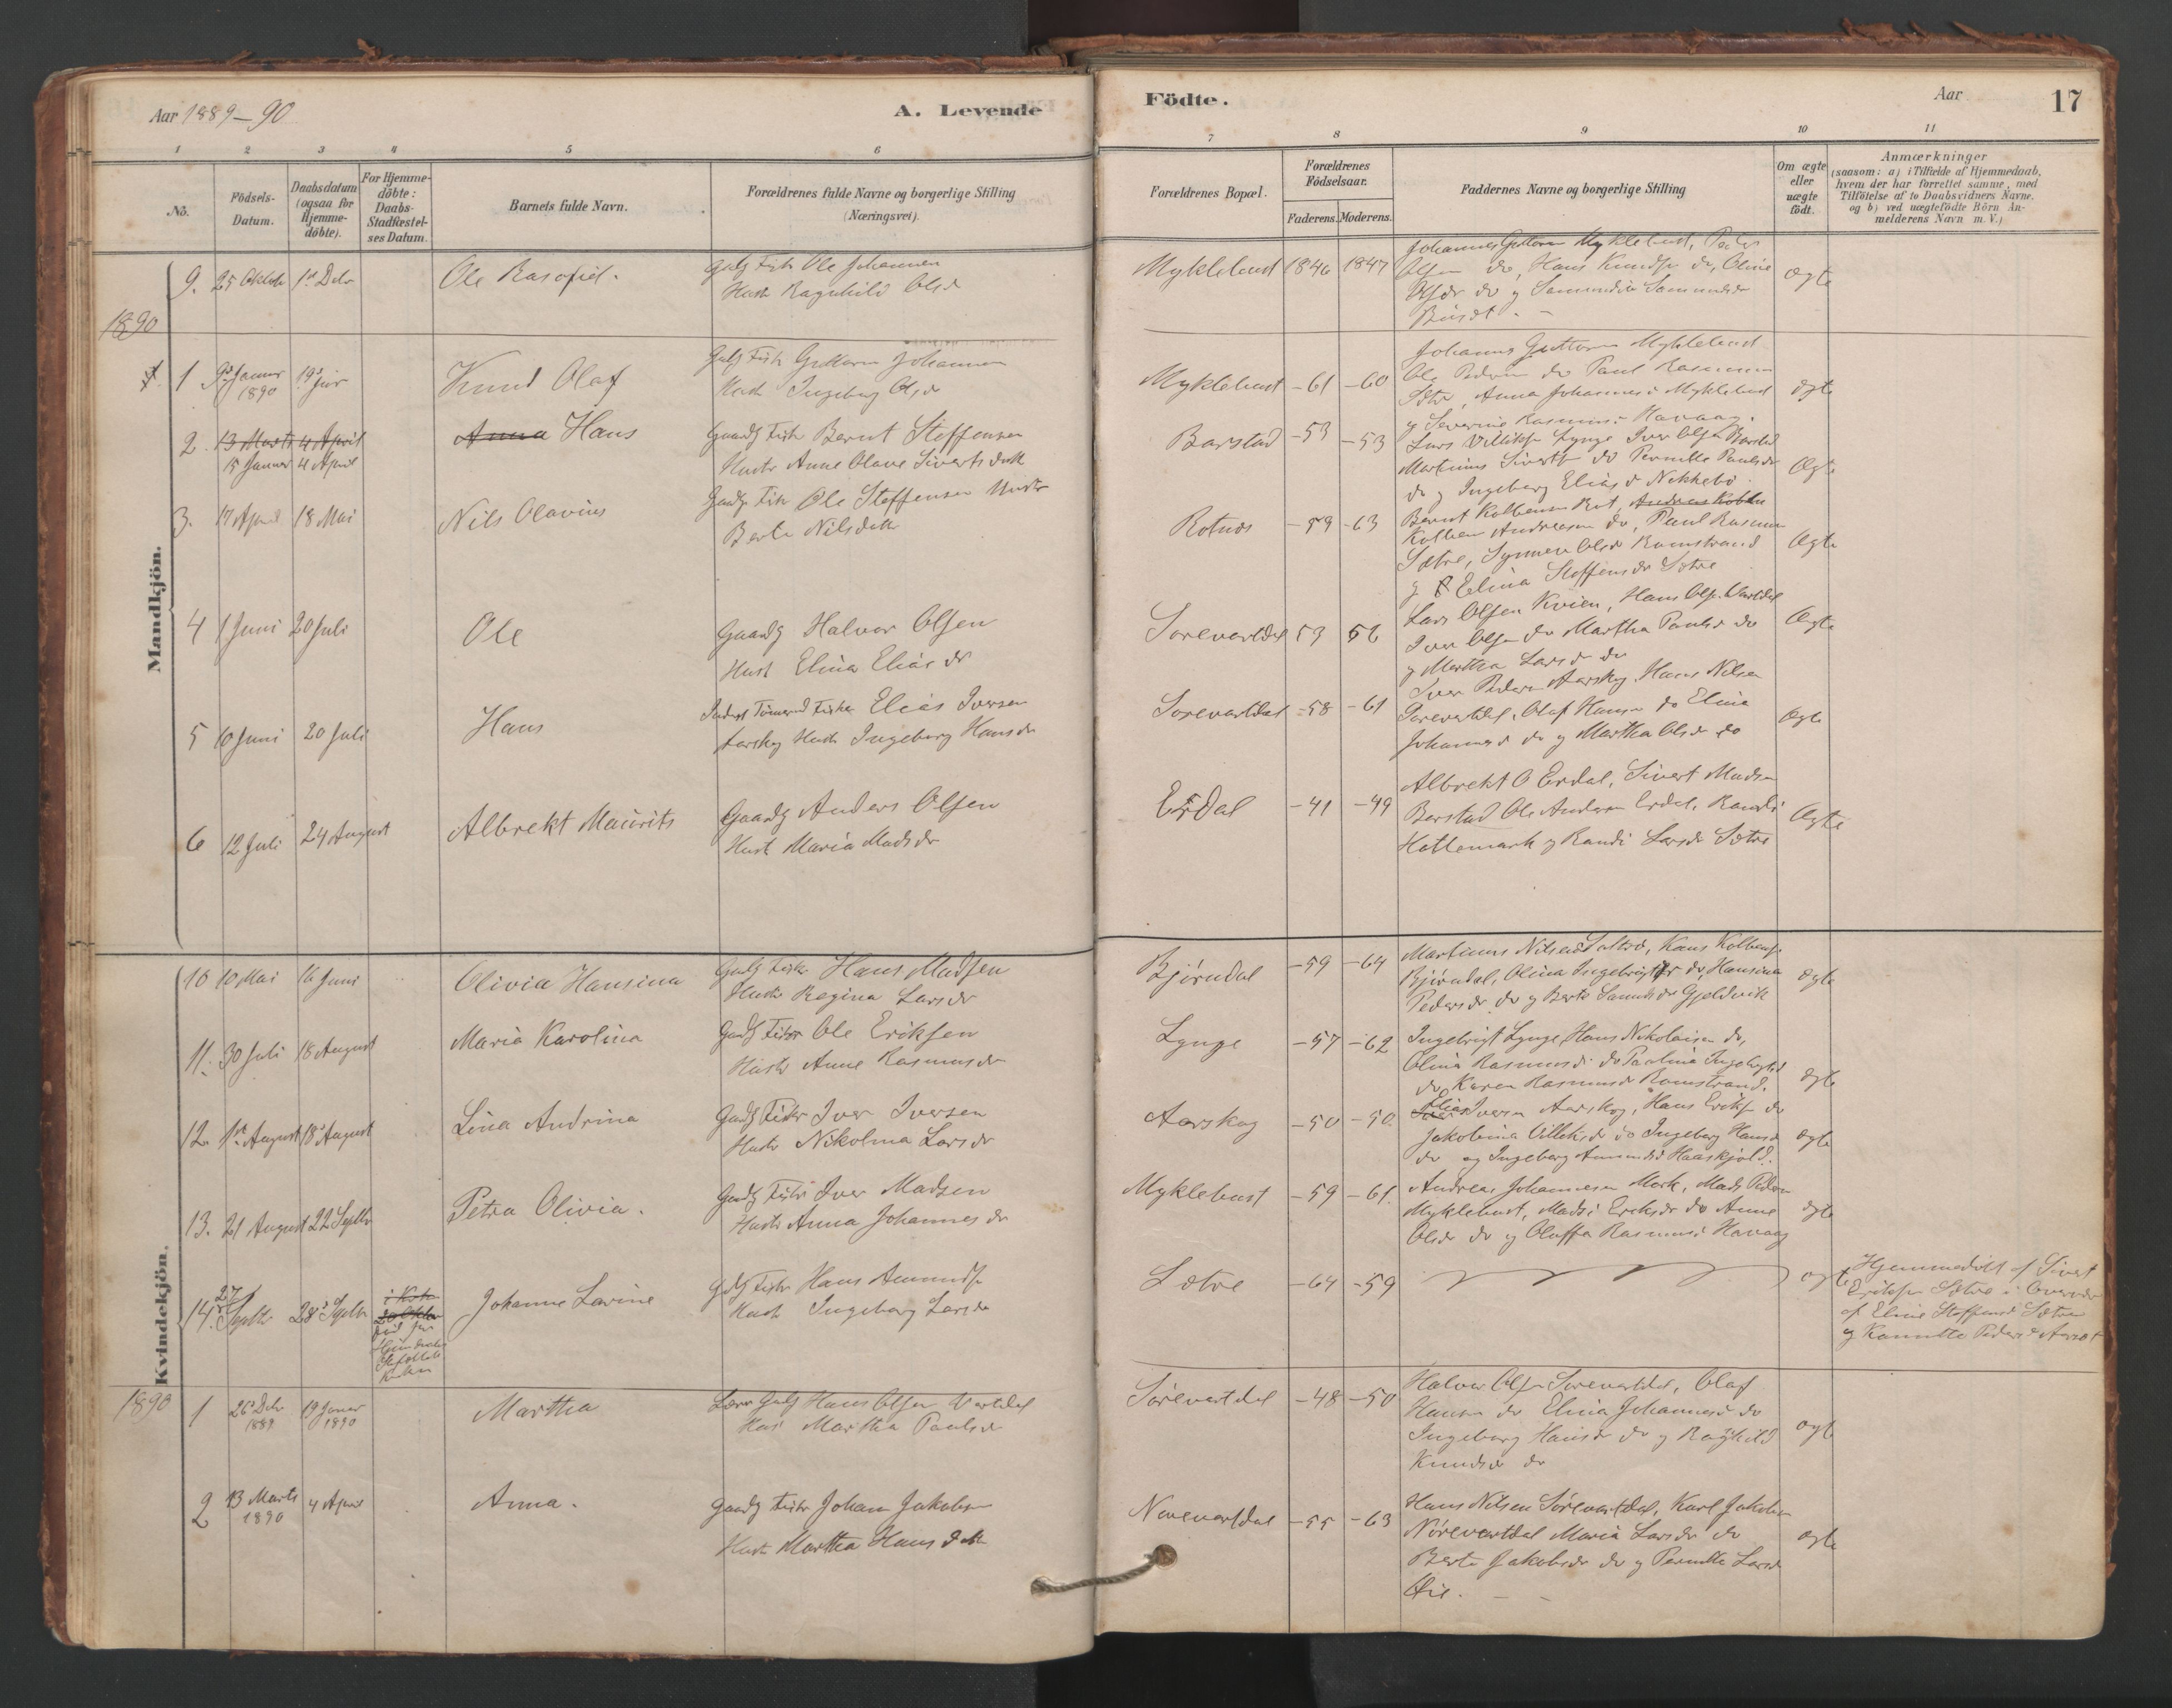 Aar 1889–90
A. Levende
Födte.
Aar
17
1 2 3 4 5 6 7 8 9 10 11
No.
Födsels-Datum.
Daabsdatum (ogsaa for Hjemme-döbte).
For Hjemme-döbte: Daabs-Stadfæstel-ses Datum.
Barnets fulde Navn.
Forældrenes fulde Navne og borgerlige Stilling (Næringsvei).
Forældrenes Bopæl.
Forældrenes Födselsaar.
Faderens. Moderens.
Faddernes Navne og borgerlige Stilling
Om ægte eller uægte födt.
Anmærkninger
(saasom: a) i Tilfælde af Hjemmedaab,
hvem der har forrettet samme, med
Tilföielse af to Daabsvidners Navne,
og b) ved uægtefödte Börn An-
melderens Navn m. V.)
Mandkjön.
9. 25 Oktob 1st Debr Ole
Gaardb Fisk Ole Johannsen
Hustr Ragnhild Olsdr
Myklebust 1846 1847
Johannes Guttorm Myklebust, Peder
Olsen do, Hans Knudsen do, Oline
Olsdr do og
ægte
1890
1 9de Januar 1890 19de Jan Knud Olaf
Gaardb Fisk Guttorm Johannsen
Hust Ingeborg Olsdr
Myklebust –61 –60
Johannes Guttorm Myklebust
Ole Pedersen do Paul Rasmussen
Sætre, Anna Johannesd Myklebust
og Severine Rasmusd Havaag.
ægte
2. 13 Marts 4 April
15 Januar 4 April
Anna Hans
Gaardb Fisk Bernt Steffensen
Hustr Anne Olave Sivertsdatt
Barstad –53 –53
Lars Lynge Iver Olsen Barstad
Martinus Sivertsen do Pernille Paulsdr
do og Ingeborg Eliasd Nekkebø
Ægte
3. 17 April 18 Mai Nils Olavius
Gaardb Fisk Ole Steffensen Hustr
Berte Nilsdatt
Rotnes –59 –63
Bernt Kolbensen Rot,
Kolben Andreasen do, Paul Rasmussen
Sætre, Synneve Olsdr Ramstrand
og Elina Steffensdr Sætre
Ægte
4 1 Juni 20 Juli Ole
Gaardb Halvor Olsen
Hust Elina Eliasdr
Sørevartdal 53 56
Lars Olsen Kvien, Hans Ols. Vartdal
Iver Olsen do Martha Paulsd do
og Martha Larsdr do
Ægte
5 10 Juni 20 Juli Hans
Inderst Tømmermd Fisker Elias Iversen
Aarskog Hustr Ingeborg Hansdr
Sørevartdal –58 –61
Iver Pedersen Aarskog, Hans Nilsen
Sørevartdal, Olaf Hansen do Elina
Johannesd do og Martha Olsdr do
Ægte
6 12 Juli 24 August Albrekt Maurits
Gaardb Anders Olsen
Hust Maria Madsdr
Erdal –41 –49
Albrekt O Erdal, Sivert Madsen
Barstad Ole Andersen Erdal, Randi
Hattemark og Randi Larsdr Sætre
Ægte
Kvindekjön.
10 10 Mai 16 Juni Olivia Hansina
Gaardb Fisker Hans Madsen
Hustr Regina Larsdr
Bjørndal –59 –64
Martinus Nilsen Saltre, Hans Kolbens.
Bjørndal, Olina Ingebrigtsdr do, Hansina
Pedersdr do og Berte Samuelsdr Gjeldvik
ægte
11. 30 Juli 18 August Maria Karolina
Gaardb Fisker Ole Eriksen
Hustr Anne Rasmusdr
Lynge –57 –62
Ingebrigt Lynge, Hans Nikolaisen do,
Olina Rasmusd do Paulina Ingebrigtsd
do, Karen Rasmusdr Ramstrand.
ægte
12. 1st August 18 August Lina Andrina
Gaardb Fisker Iver Iversen
Hustr Nikolina Larsdr
Aarskog –50 –50.
Elias Iversen Aarskog, Hans Eriks do
Jakobina Villiksd do Ingeborg Hansd
do og Ingeborg Amundsd Haaskjold.
ægte
13. 21 August 22 Septbr Petra Olivia.
Gaardb Fisker Iver Madsen
Hustr Anna Johannesdr
Myklebust –59 –61
Andreas Johannesen Mork, Mads Pedersen
Myklebust, Madsi Eriksdr do Anne
Olsdr do og Oluffa Rasmusd Havaag
ægte
14. 27 Septbr 28de Septbr Johanne Lavine
Gaardb Fisker Hans Amundsen
Hust Ingeborg Larsdr
Sætre –64 –59
ægte
Hjemmedøbt af Sivert
Eriksen Sætre i Overvær
af Eline Steffensd Sætre
og Pedersd Aarset
1890
1 26de Debr 1889 19 Januar 1890 Martha
Lærer Gaardb Hans Olsen Vartdal
Hust Martha Paulsd
Sørevartdal –48 –50
Halvor Olsen Sørevartdal, Olaf
Hansen do Elina Johannesd do
Ingeborg Hansdr do og Ragnhild
Knudsd do
ægte
2 13 Marts 1890 4 April Anna.
Gaardb Fisker Johan Jakobsen
Hustr Martha Hansdatt
Nørevartdal –55 –63
Hans Nilsen Sørevartdal, Karl Jakobsen
Nørevartdal Maria Larsdr do
Berte Jakobsdr do og Pernille Larsd
Øie.
ægte